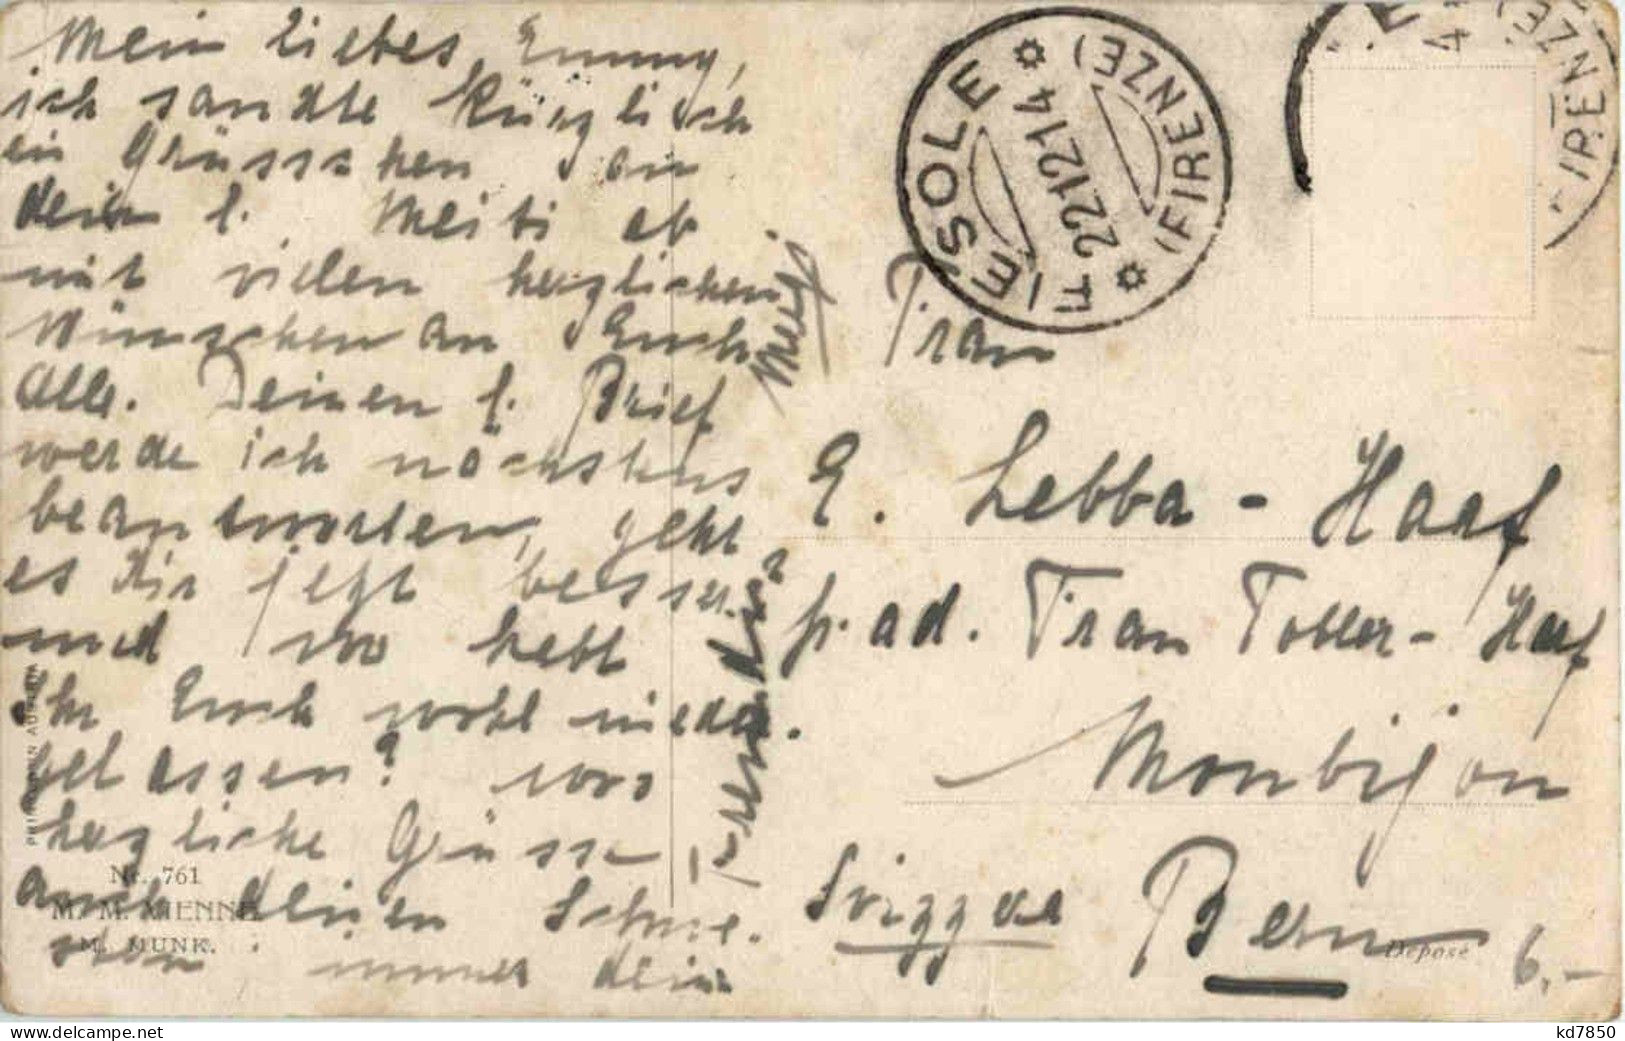 Mein liebes Emmy,
ich sandte kürzlich
ein Grüsschen an
dein l. Meiti ab
mit vielen herzlichen
Wünschen an Euch
Alle. Deinen l. Brief
werde ich nächstens
beantworten, geht
es Dir jetzt besser.
und wo habt
Ihr Euch wohl nieder.
gelassen? 1000
herzliche Grüsse
auch deinen Schwe.
stern immer dein
FIESOLE
(FIRENZE)
22 12 14
Frau
E. Lebba - Haaf
p. ad. Frau Tobler - Haaf
Monbijou
Svizzera Bern
6.-
Nr. 761
M. M. VIENNE
M. MUNK.
Déposé
kd7850